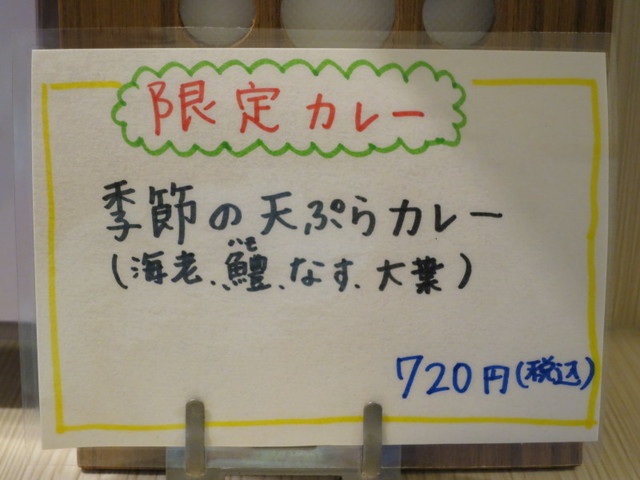 限定カレー
季節の天ぷらカレー
ハモ
(海老、鱧、なす、大葉)
720円(税込)